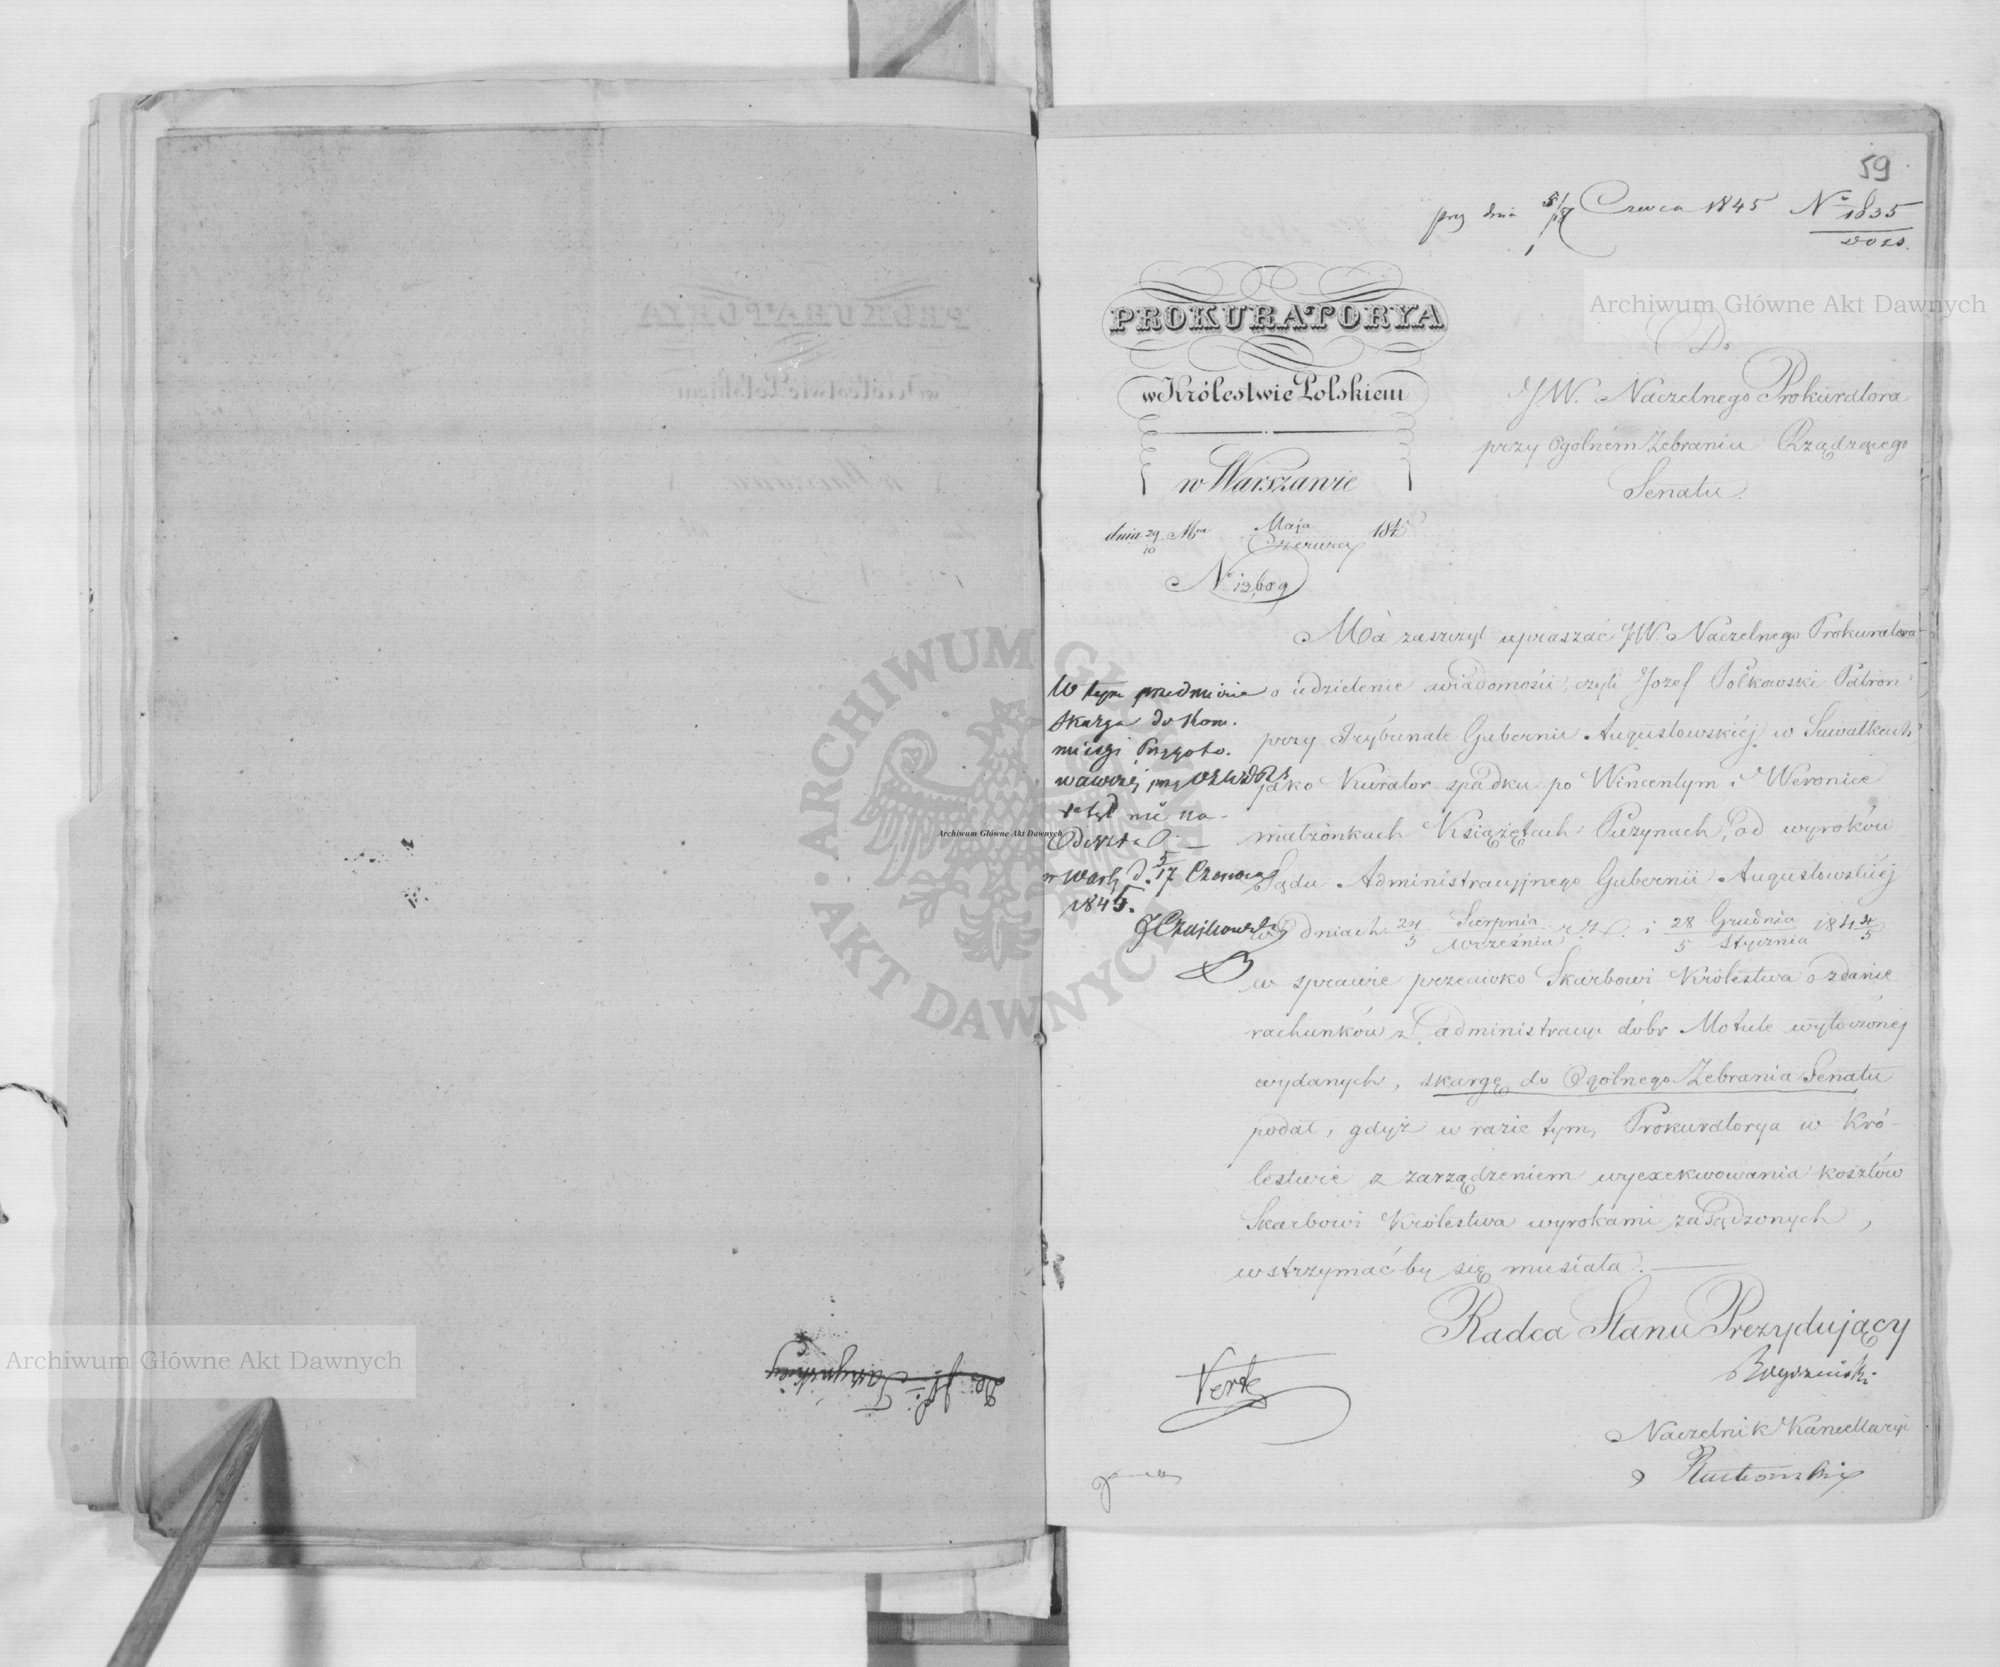 59
dnia 5/18 Czerwca 1845 Nº 1835
Archiwum Główne Akt Dawnych
PROKURATORYA
w Królestwie Polskiem
w Warszawie
dnia 29/10 Maja/Czerwca 1845
Nº 12,609
Do
JW. Naczelnego Prokuratora
przy Ogólném Zebraniu Rządzącego
Senatu.
Ma zaszczyt upraszać JW. Naczelnego Prokuratora
o udzielenie wiadomości, czyli Jozef Polkowski Patron
przy Trybunale Gubernii Augustowskiéj w Suwałkach
jako Kurator spadku po Wincentym i Weronice
małżonkach Książętach Puzynach, od wyroków
Sądu Administracyjnego Gubernii Augustowskiéj
w dniach 24/5 Sierpnia/września r. z. i 28/5 Grudnia/stycznia 184 4/5
w sprawie przeciwko Skarbowi Królestwa o zdanie
rachunków z administracyi dóbr Motule wytoczonéj
wydanych, skargę do Ogólnego Zebrania Senatu
podał, gdyż w razie tym, Prokuratorya w Kró-
lestwie z zarządzeniem wyexekwowania kosztów
Skarbowi Królestwa wyrokami zasądzonych,
wstrzymać by się musiała.
Radca Stanu Prezydujący
Naczelnik Kancellaryi
W tym przedmiocie
skarga do Kom.
missyi Przygoto.
wawczéj przy
nie na-
deszła
w Warsz. d. 5/17 Czerwca
1845.
J Czajkowski
Verte
ARCHIWUM GŁÓWNE AKT DAWNYCH
Archiwum Główne Akt Dawnych
Archiwum Główne Akt Dawnych